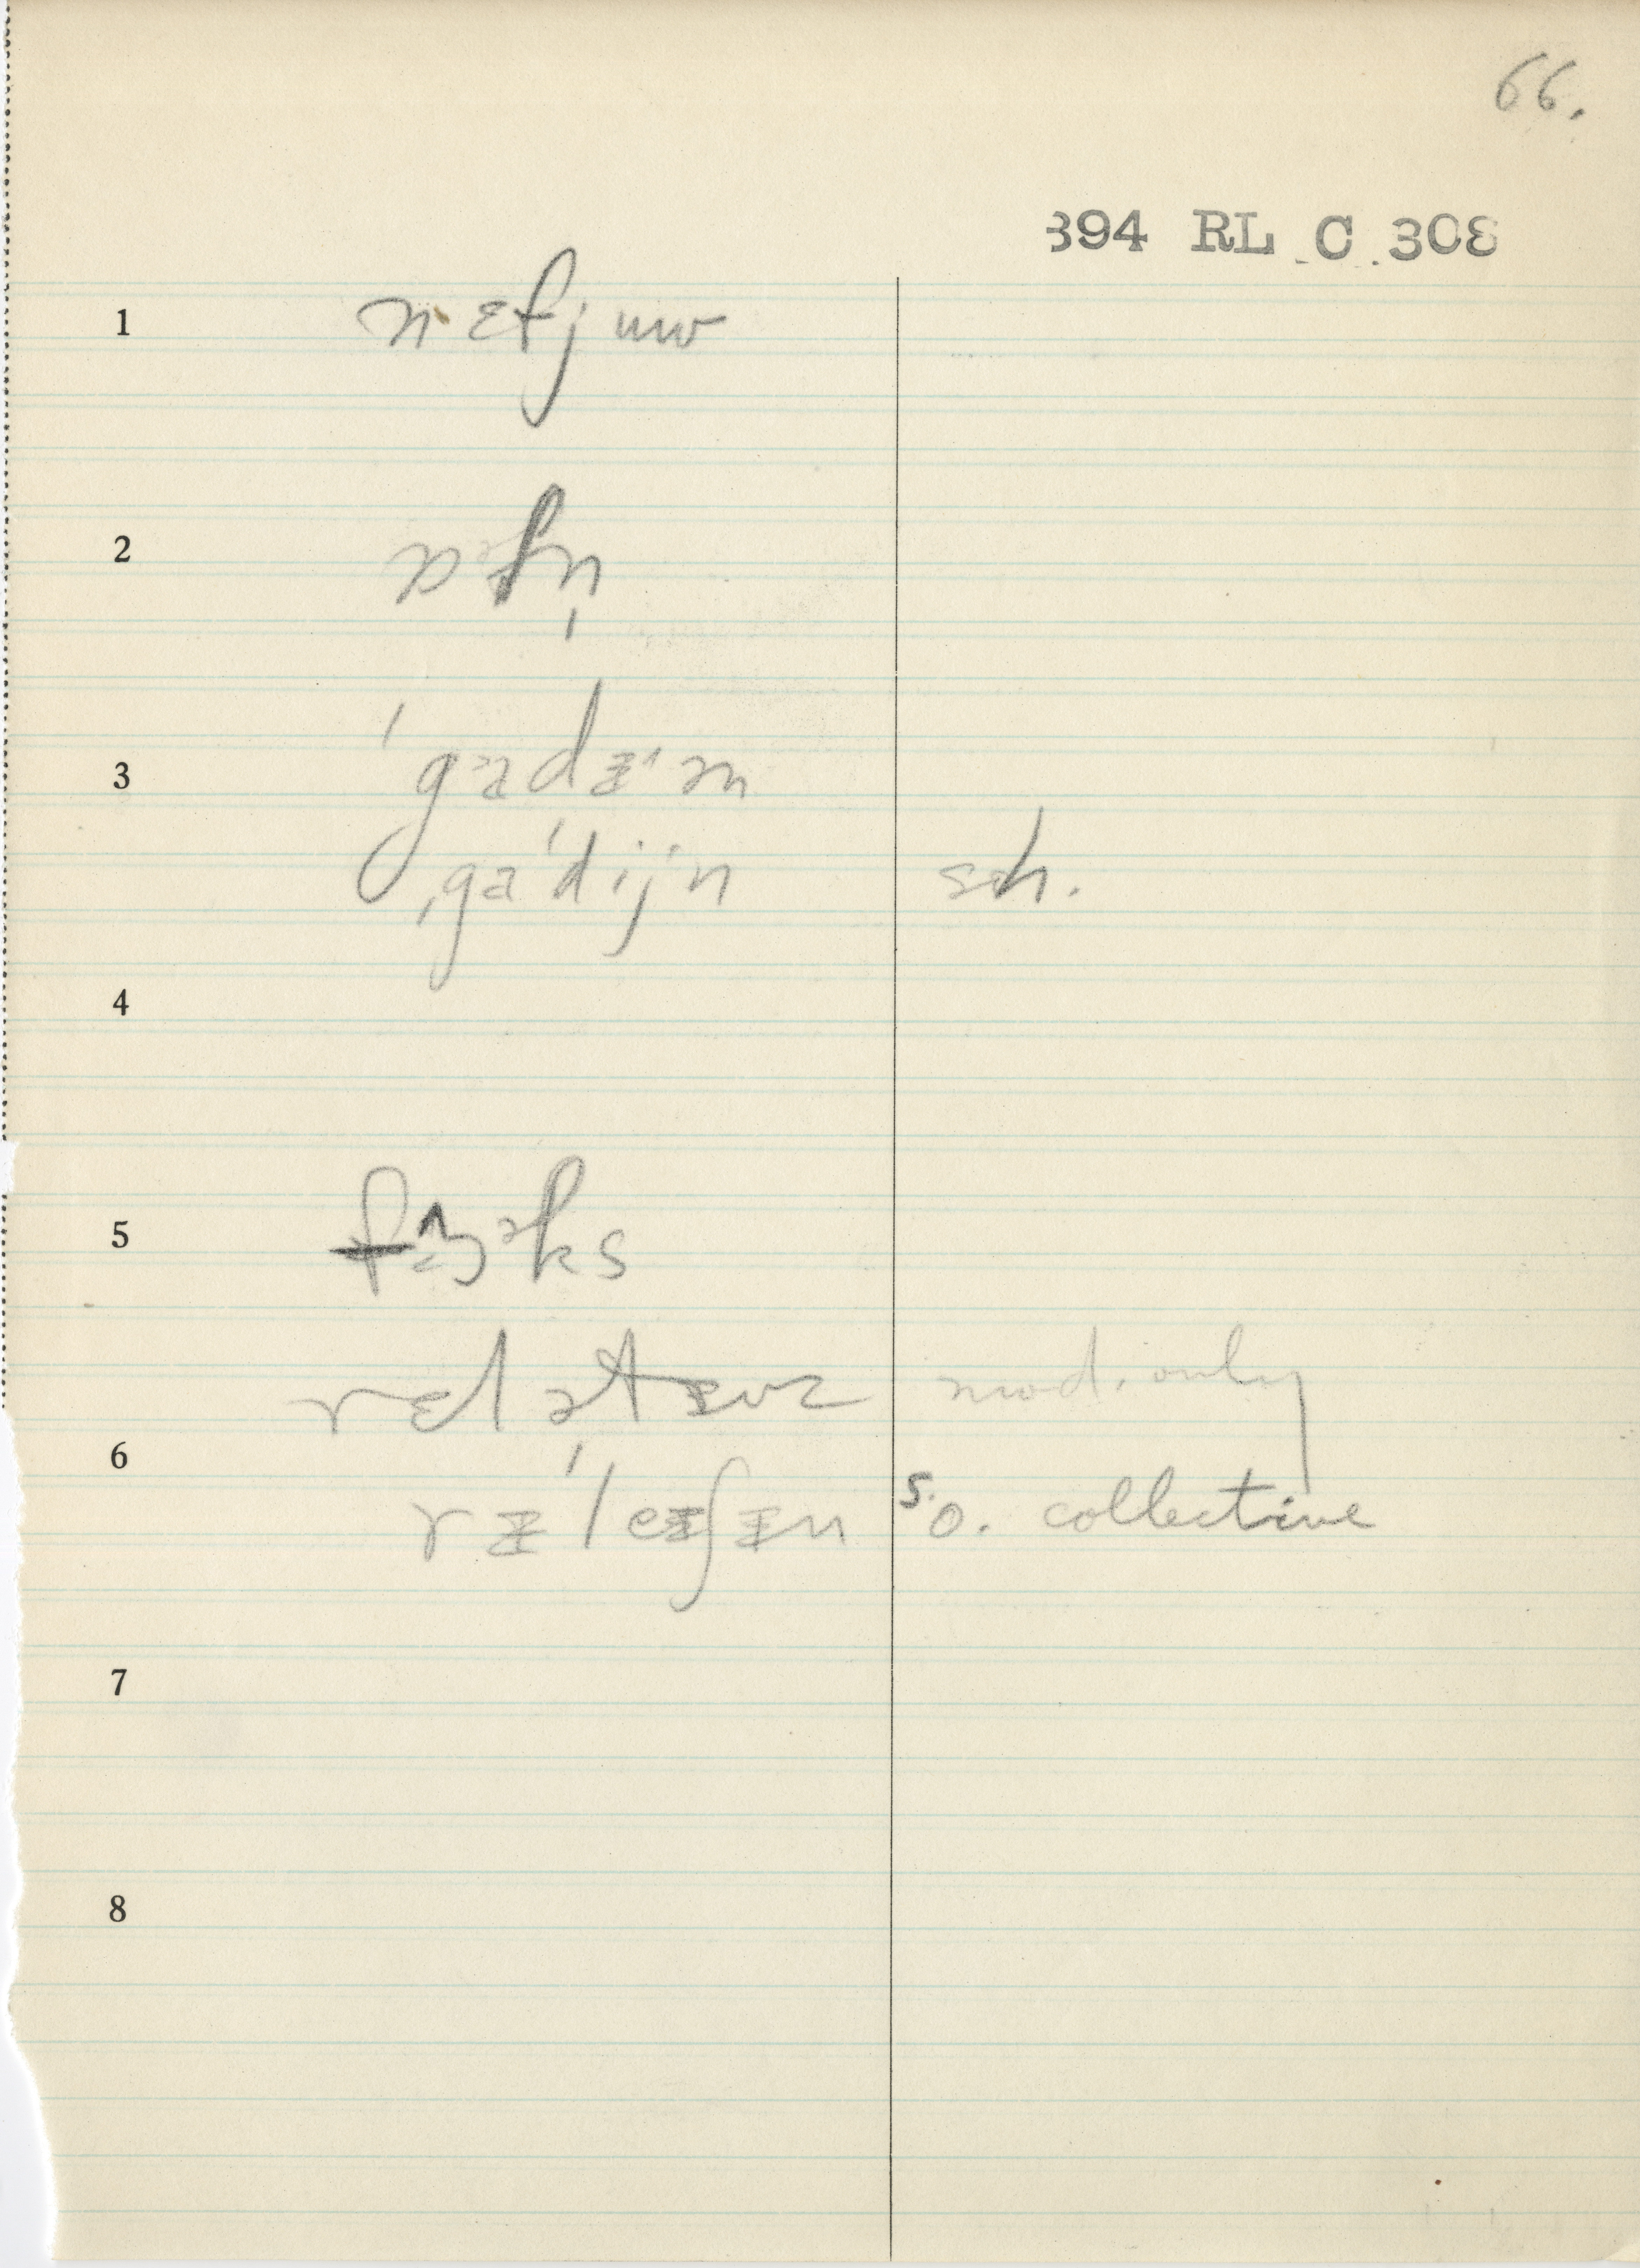 66.
394 RL C 308
1 nɛfjuw
2 ɒfn̩
3 ˈgɜdɨˑən
ˌgaˈdijˑn sh.
4
5 fɜᵊks
rɛlətɨvz mod. only
6 rɨˈleɨʃɨn s. o. collective
7
8